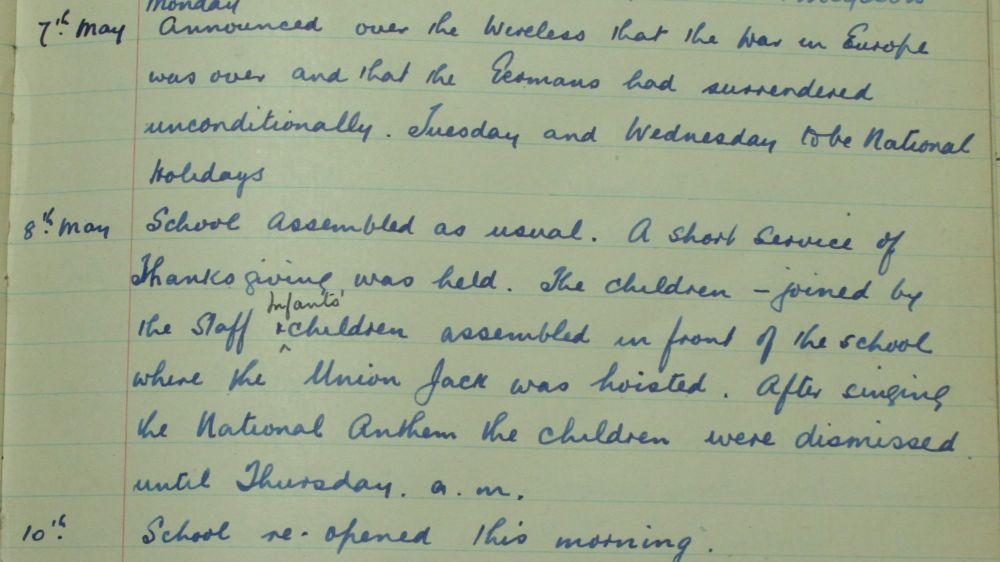 Monday
7th. May Announced over the Wireless that the War in Europe
was over and that the Germans had surrendered
unconditionally. Tuesday and Wednesday to be National
Holidays
8th. May School assembled as usual. A short Service of
Thanksgiving was held. The children - joined by
Infants'
the Staff & ^ children assembled in front of the school
where the Union Jack was hoisted. After singing
the National Anthem the children were dismissed
until Thursday. a.m.
10th. School re-opened this morning.